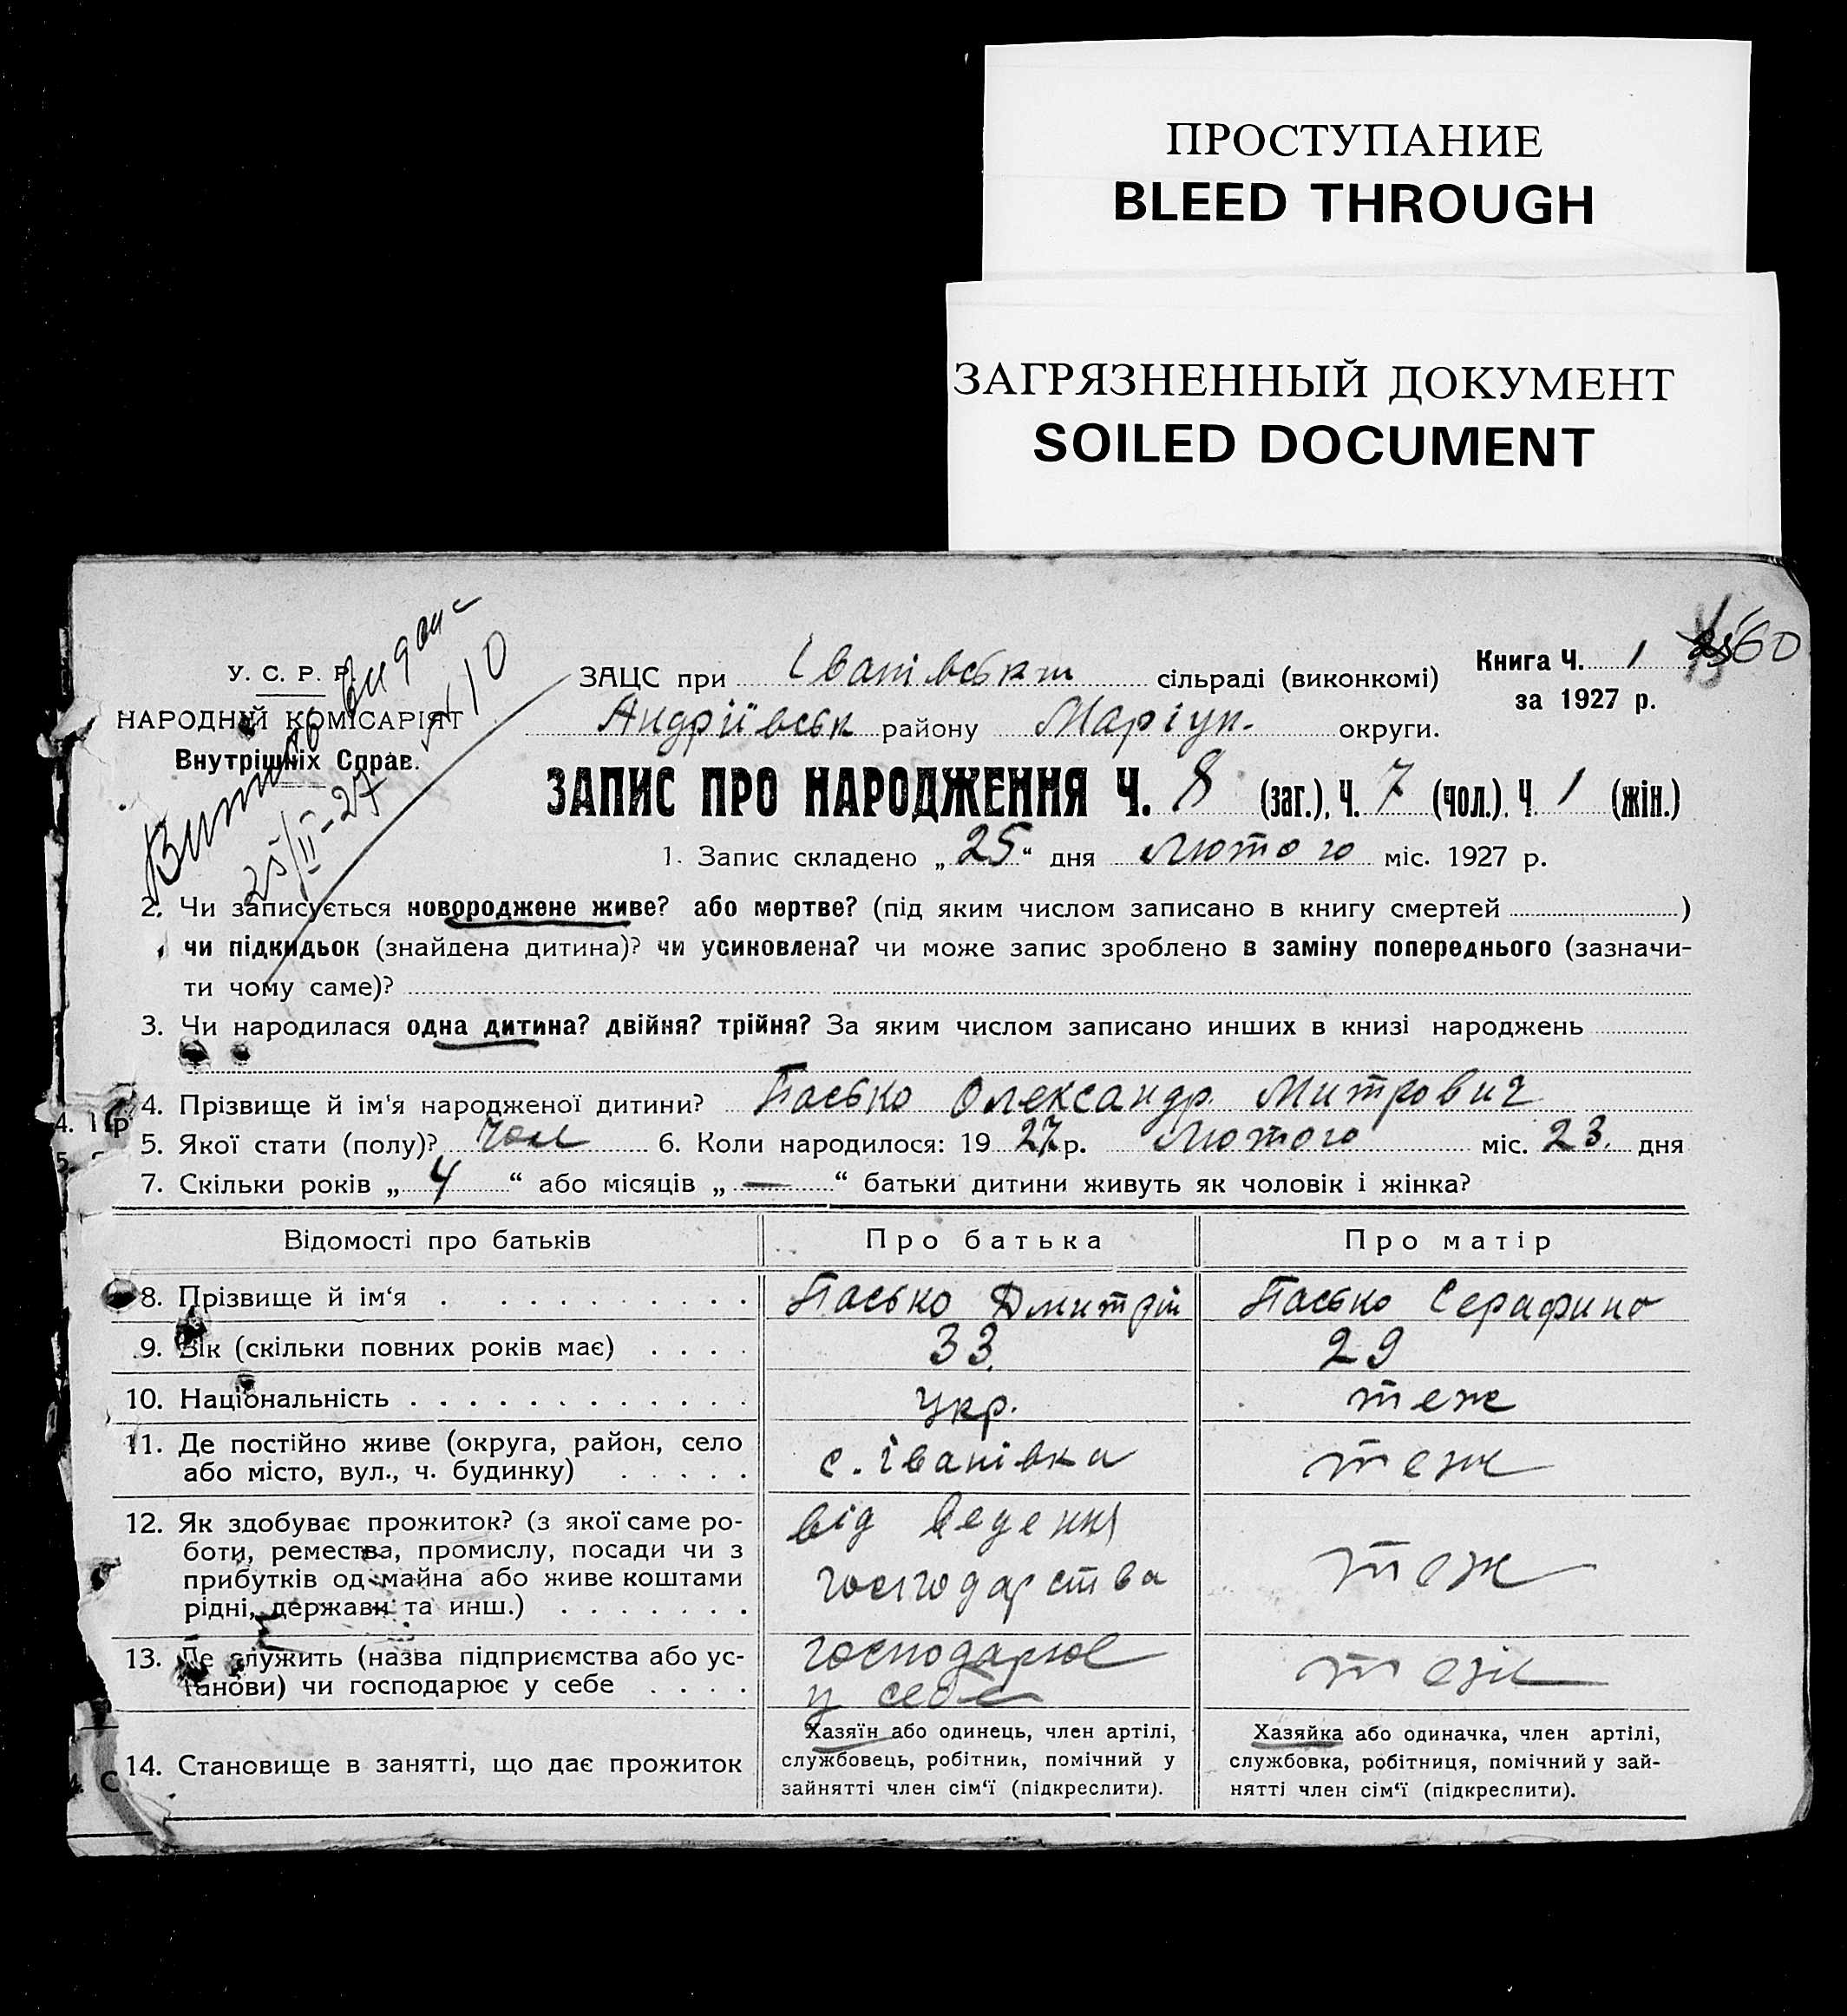 ПРОСТУПАНИЕ
BLEED THROUGH
ЗАГРЯЗНЕННЫЙ ДОКУМЕНТ
SOILED DOCUMENT
У. С. Р. Р.
НАРОДНІЙ КОМІСАРІЯТ
Внутрішніх Справ.
Витяг видан
25/II-27
ЗАЦС при Іванівськт сільраді (виконкомі)
Книга Ч. 1
60
за 1927 р.
Андріївськ району Маріуп. округи.
ЗАПИС ПРО НАРОДЖЕННЯ Ч. 8 (заг.), Ч. 7 (чол.), Ч. 1 (жін.)
1. Запис складено „25“ дня Лютого міс. 1927 р.
2. Чи записується новороджене живе? або мертве? (під яким числом записано в книгу смертей )
чи підкидьок (знайдена дитина)? чи усиновлена? чи може запис зроблено в заміну попереднього (зазначи-
ти чому саме)?
3. Чи народилася одна дитина? двійня? трійня? За яким числом записано инших в книзі народжень
4. Прізвище й ім‘я народженої дитини? Пасько Олександр Митрович
5. Якої стати (полу)? Чол 6. Коли народилося: 1927 р. Лютого міс. 23. дня
7. Скільки років „4“ або місяців „—“ батьки дитини живуть як чоловік і жінка?
Відомості про батьків Про батька Про матір
8. Прізвище й ім‘я Пасько Дмитрій Пасько Серафина
9. Вік (скільки повних років має) 33. 29
10. Національність Укр. теж
11. Де постійно живе (округа, район, село
або місто, вул., ч. будинку) с. Іванівка теж
12. Як здобуває прожиток? (з якої саме ро-
боти, ремества, промислу, посади чи з
прибутків од майна або живе коштами
рідні, держави та инш.)
від ведення
господарства
теж
13. Де служить (назва підприємства або ус-
танови) чи господарює у себе
господарює
у себе
теж
14. Становище в занятті, що дає прожиток
Хазяїн або одинець, член артілі,
службовець, робітник, помічний у
зайнятті член сім‘ї (підкреслити).
Хазяйка або одиначка, член артілі,
службовка, робітниця, помічний у зай-
нятті член сім‘ї (підкреслити).